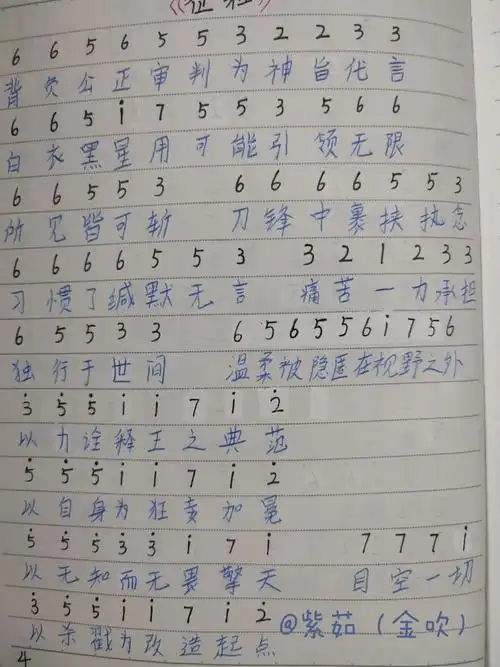 《征程》
6 6 5 6 5 5 3 2 2 3 3
背负公正审判为神旨代言
6 6 5 i 7 5 5 3 5 6 6
白衣黑星用可能引领无限
6 6 5 5 3 6 6 6 6 5 5 3
所见皆可斩 刀锋中裹挟执念
6 6 6 6 5 5 3 3 2 1 2 3 3
习惯了缄默无言 痛苦一力承担
6 5 5 3 3 6 5 6 5 5 6 i 7 5 6
独行于世间 温柔被隐匿在视野之外
3̇ 5̇ 5̇ i i 7 i 2̇
以力诠释王之典范
5̇ 5̇ 5̇ i i 7 i 2̇
以自身为狂妄加冕
5̇ 5̇ 5̇ 3̇ 3̇ i 7 i 7 7 7 i
以无知而无畏擎天 目空一切
3̇ 5̇ 5̇ i i 7 i 2̇
以杀戮为改造起点
@紫茹(金吹)
4